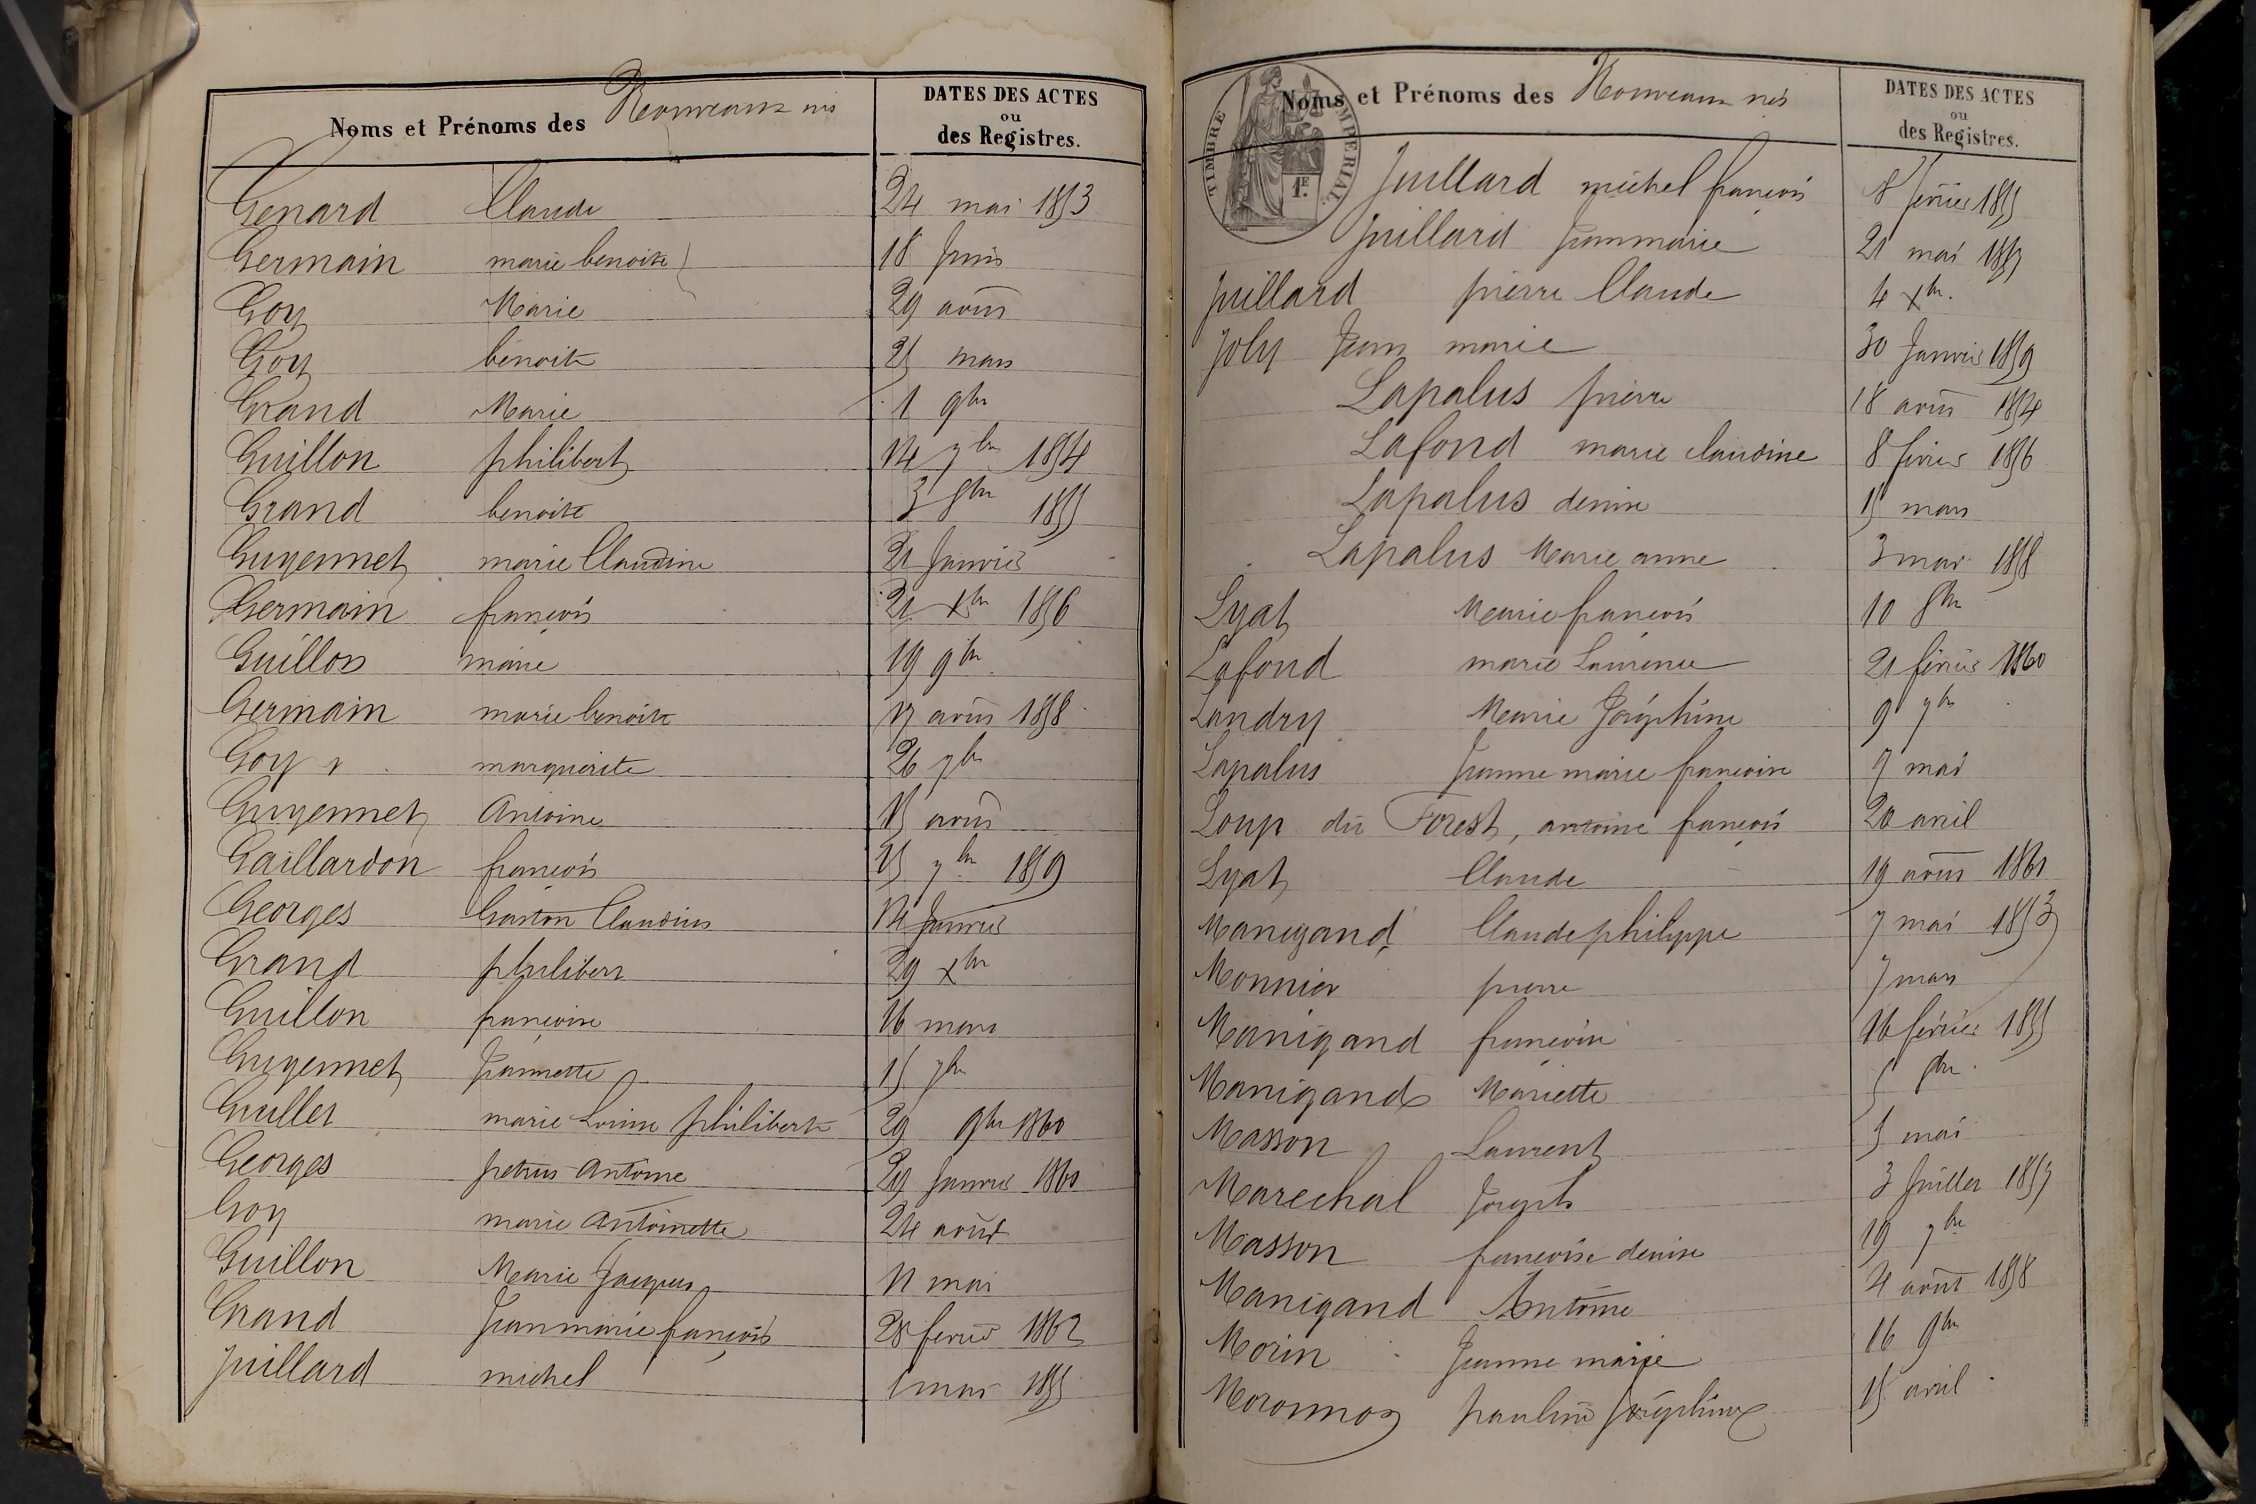 Noms et Prénoms des Nouveaux nés
DATES DES ACTES
ou
des Registres.
Genard Claude 24 mai 1853
Germain marie benoite 18 Juin
Goy Marie 29 août
Goy benoite 25 mars
Grand Marie 1 9bre
Guillon philibert 14 7bre 1854
Grand benoite 3 8bre 1855
Guyennet marie Claudine 21 Janvier
Germain françois 21 Xbre 1856
Guillon marie 19 9bre
Germain marie benoite 17 août 1858
Goy marguerite 26 7bre
Guyennet Antoine 15 août
Gaillardon françois 25 7bre 1859
Georges Gaston Claudius 14 Janvier
Grand philibert 29 Xbre
Guillon françoise 16 mars
Guyennet Jeannette 15 7bre
Grullet marie Louise philiberte 29 9bre 1860
Georges petrus antoine 29 Janvier 1861
Goy marie antoinette 24 août
Guillon Marie Jacques 11 mai
Grand Jean marie françois 28 fevrier 1862
Juillard michel 1 mars 1855
TIMBRE IMPERIAL.
1E.
Noms et Prénoms des Nouveaux nés
DATES DES ACTES
ou
des Registres.
Juillard michel françois 8 février 1855
Juillard Jean marie 21 mai 1857
Juillard pierre Claude 4 Xbre.
Joly Jean marie 30 Janvier 1859
Lapalus pierre 18 août 1854
Lafond marie claudine 8 février 1856
Lapalus denise 15 mars
Lapalus Marie anne 3 mars 1858
Lyat Marie françois 10 8bre
Lafond marie Laurence 21 février 1860
Landry Marie Joséphine 9 7bre
Lapalus Jeanne marie francoise 7 mai
Loup du Forest, antoine françois 20 avril
Lyat Claude 19 août 1861
Manigand Claude philippe 7 mai 1853
Monnier pierre 7 mars
Manigand françoise 16 février 1855
Manigand Mariette 5 8bre.
Masson Laurent 5 mai
Marechal Joseph 3 Juillet 1857
Masson francoise denise 19 7bre
Manigand Antoine 4 août 1858
Morin Jeanne marie 16 9bre
Moronnoz pauline Joséphine 15 avril